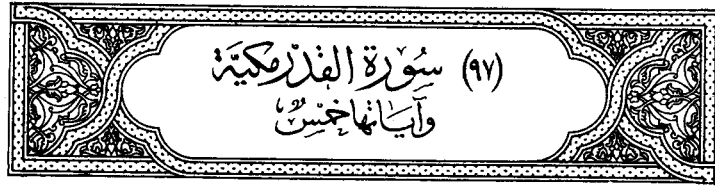 (٩٧) سُورَة القَدْر مَكيَّة
وَآيَاتهَا خَمْسٌ